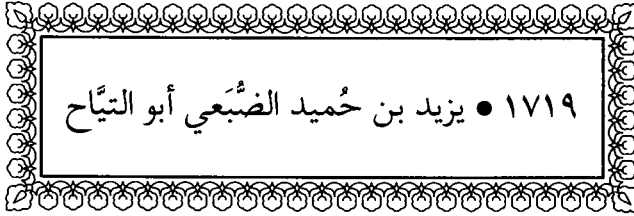 ١٧١٩ ● يزيد بن حُميد الضُّبَعي أبو التيَّاح